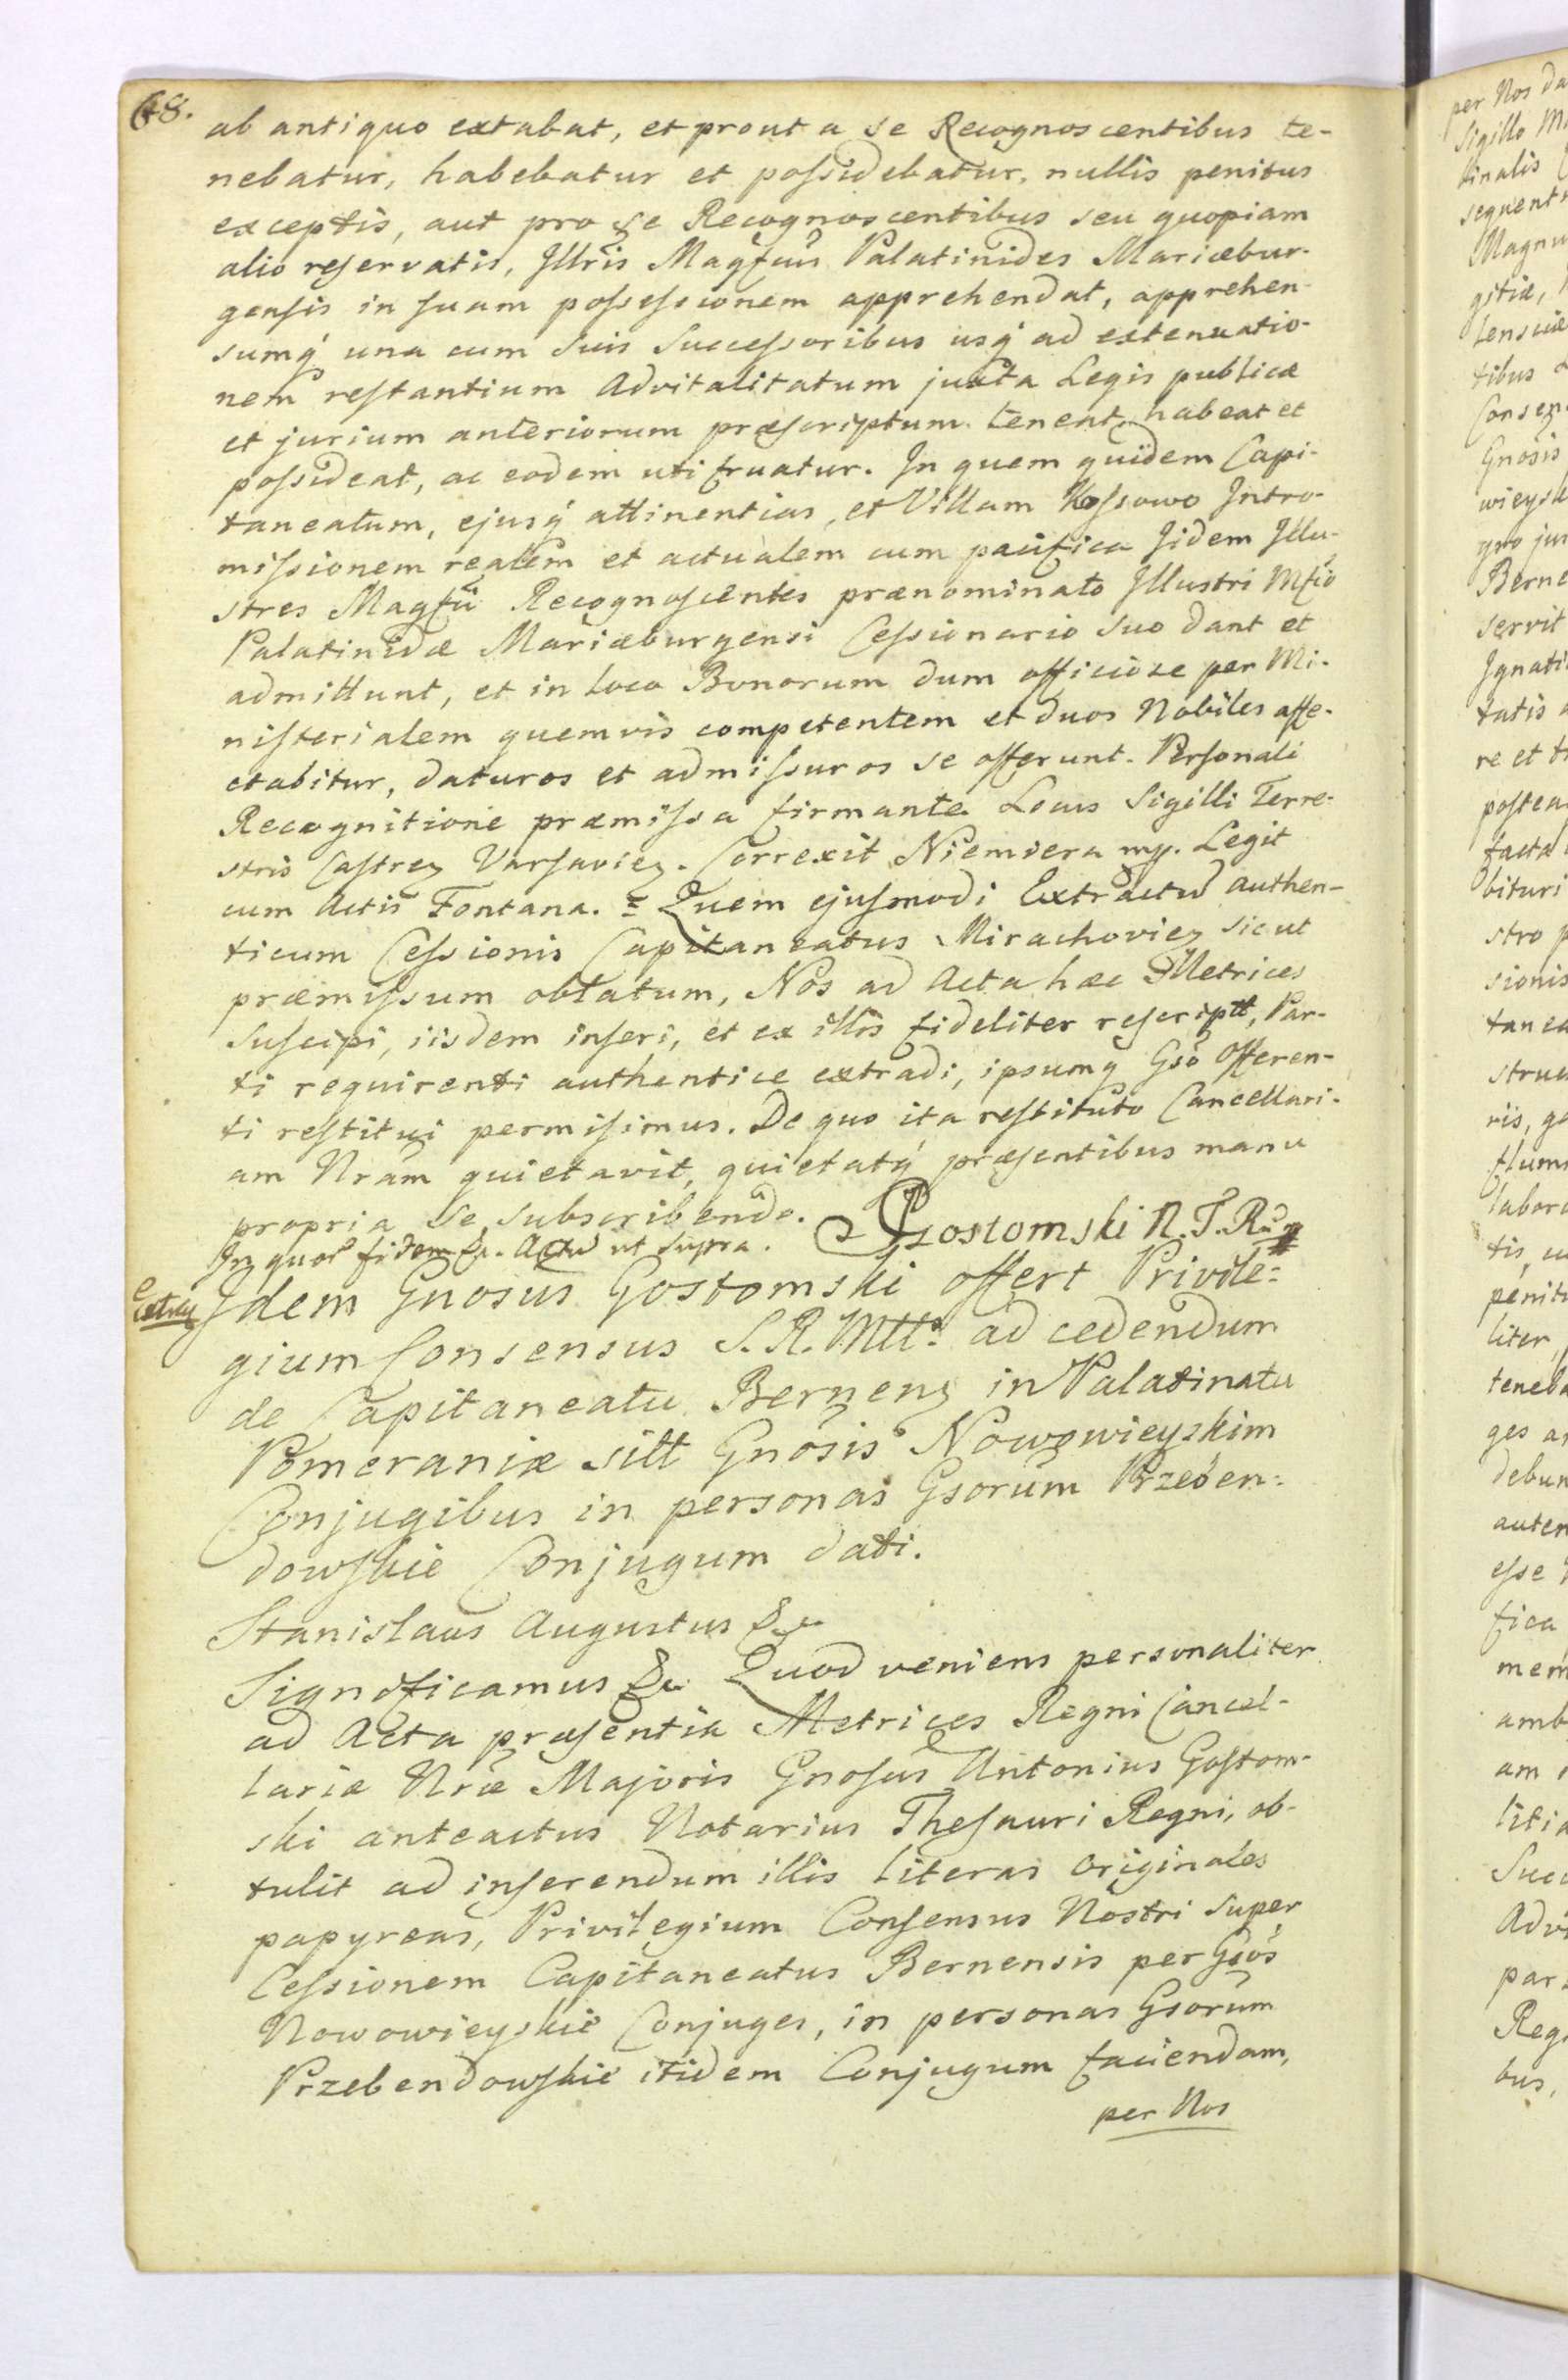 68.
ab antiquo extabat, et prout a se Recognoscentibus te-
nebatur, habebatur et possidebatur, nullis penitus
exceptis, aut pro se Recognoscentibus seu quopiam
alio reservatis, Illris Magfcus Palatinides Mariæbur-
gensis in suam possessionem apprehendat, apprehen-
sumq́ una cum suis Successoribus usq́ ad extenuatio-
nem restantium Advitalitatum juxta Legis publicæ
et jurium anteriorum præscriptum. teneat, habeat et
possideat, ac eodem uti fruatur. In quem quidem Capi-
taneatum, ejusq́ attinentias, et Villam Kossowo Intro-
missionem realem et actualem cum pacifica Iidem Illu-
stres Magfci Recognoscentes prænominato Illustri Mfco
Palatinidæ Mariæburgensi Cessionario suo dant et
admittunt, et in loco Bonorum dum officiose per Mi-
nisterialem quemvis competentem et duos Nobiles affe-
ctabitur, daturos et admissuros se offerunt. Personali
Recognitione præmissa firmante. Locus Sigilli Terre-
stris Castren Varsavien. Correxit Niemiera mp. Legit
cum Actis Fontana. = Quem ejusmodi Extractũ authen-
ticum Cessionis Capitaneatus Mirachovien sicut
præmissum oblatum, Nos ad Acta hæc Metrices
suscipi, iisdem inseri, et ex illis fideliter rescriptt, Par-
ti requirenti authentice extradi, ipsumq Gsõ Offeren-
ti restitui permisimus. De quo ita restituto Cancellari-
am Nrãm quietavit, quietatq́ præsentibus manu
propria se subscribendo. Gostomski N. T. R. mp
In quor. fidem &c. Actũ ut supra.
Extrad
Idem Gnosus Gostomski offert Privile=
gium Consensus S. R. Mtts ad cedendum
de Capitaneatu Bernenș in Palatinatu
Pomeraniæ sitt Gnosis Nowowieyskim
Conjugibus in personas Gsorum Przeben=
dowskie Conjugum dati.
Stanislaus Augustus &c
Significamus &c Quod veniens personaliter
ad Acta præsentia Metrices Regni Cancel-
lariæ Nræ Majoris Gnosus Antonius Gostom-
ski anteactus Notarius Thesauri Regni, ob-
tulit ad inserendum illis literas originales
papyreas, Privilegium Consensus Nostri super
Cessionem Capitaneatus Bernensis per Gsos
Nowowieyskie Conjuges, in personas Gsorum
Przebendowskie itidem Conjugum faciendam,
per Nos
per Nos da
Sigillo M
sequent
Magnu
gitiæ,
tibus
Consen
Gnosis
wieysk
Berne
servit
Ignati
tatis
re et
postea
facta
bituri
stro p
sionis
tanea
struc
labora
penit
liter,
teneba
ges
debun
auten
esse
fica
mem
amb
am
Succ
Advi
par
Reg
bus,